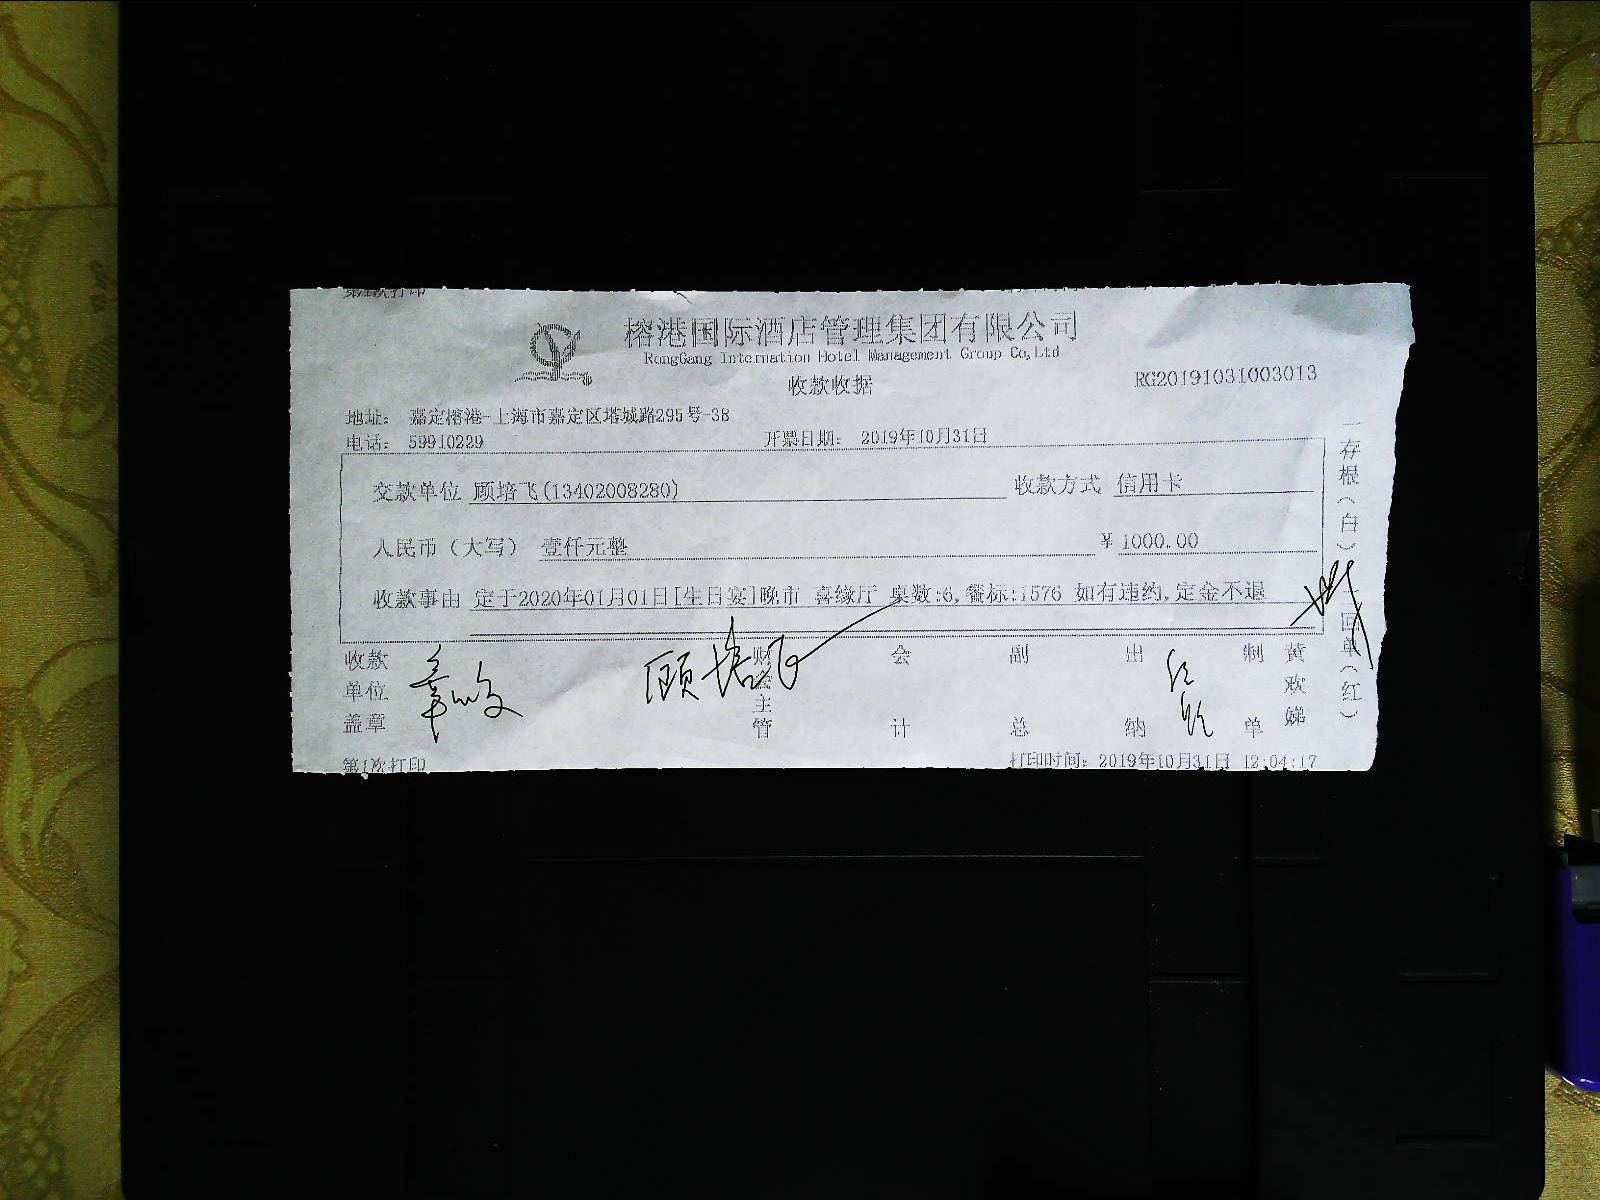 第1次打印
榕港国际酒店管理集团有限公司
RongGang Internation Hotel Management Group Co,Ltd
收款收据
RG20191031003013
地址： 嘉定榕港-上海市嘉定区塔城路295号-3B
电话： 59910229 开票日期： 2019年10月31日
交款单位 顾培飞(13402008280) 收款方式 信用卡
人民币（大写） 壹仟元整 ¥1000.00
收款事由 定于2020年01月01日[生日宴]晚市 喜缘厅 桌数:6,餐标:1576 如有违约,定金不退
一存根（白） 回单（红）
收款单位盖章 顾培飞 财会主管 会计 副总 出纳 制单 黄欢娣
第1次打印 打印时间：2019年10月31日 12:04:17